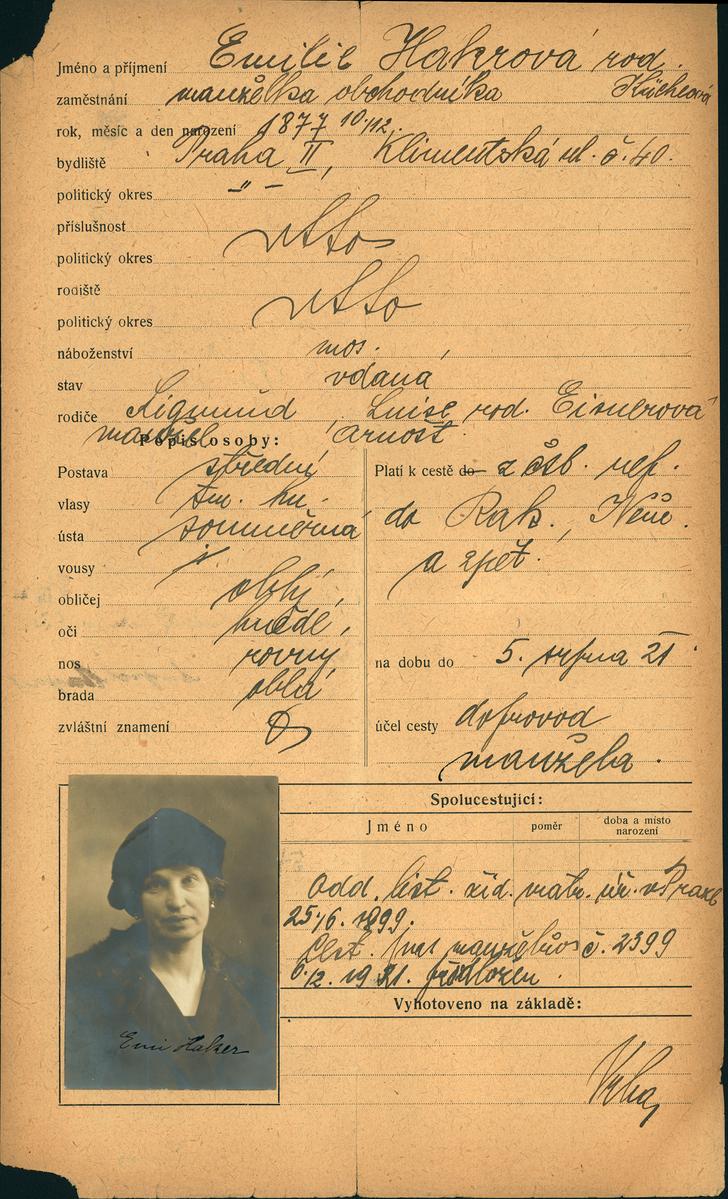 Jméno a příjmení Emilie Hakrová rod.
zaměstnání manželka obchodníka
rok, měsíc a den narození 1877 10./12.
bydliště Praha II, Klimentská ul. č. 40.
politický okres -"-
příslušnost
politický okres
rodiště
politický okres
náboženství mos.
stav vdaná
rodiče Sigmund, Luise rod. Eisnerová
manžel Arnošt.
Popis osoby:
Postava střední
vlasy tm. hn.
ústa souměrná
vousy
obličej oblý,
oči hnědé,
nos rovný
brada oblá
zvláštní znamení
Platí k cestě do z čsb. ref.
do Rak., Něm.
a zpět.
na dobu do 5. srpna 21
účel cesty doprovod
manžela.
Spolucestující:
Jméno poměr doba a místo narození
Odd. list. žid. matr. úř. v Praze
25./6. 1899.
Cest. pas manželův č. 2399
předložen.
Vyhotoveno na základě:
Emi Haker